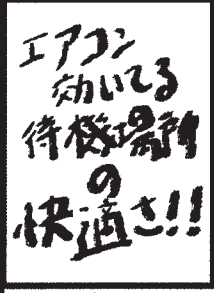 エアコン
効いてる
待機場所
の
快適さ!!